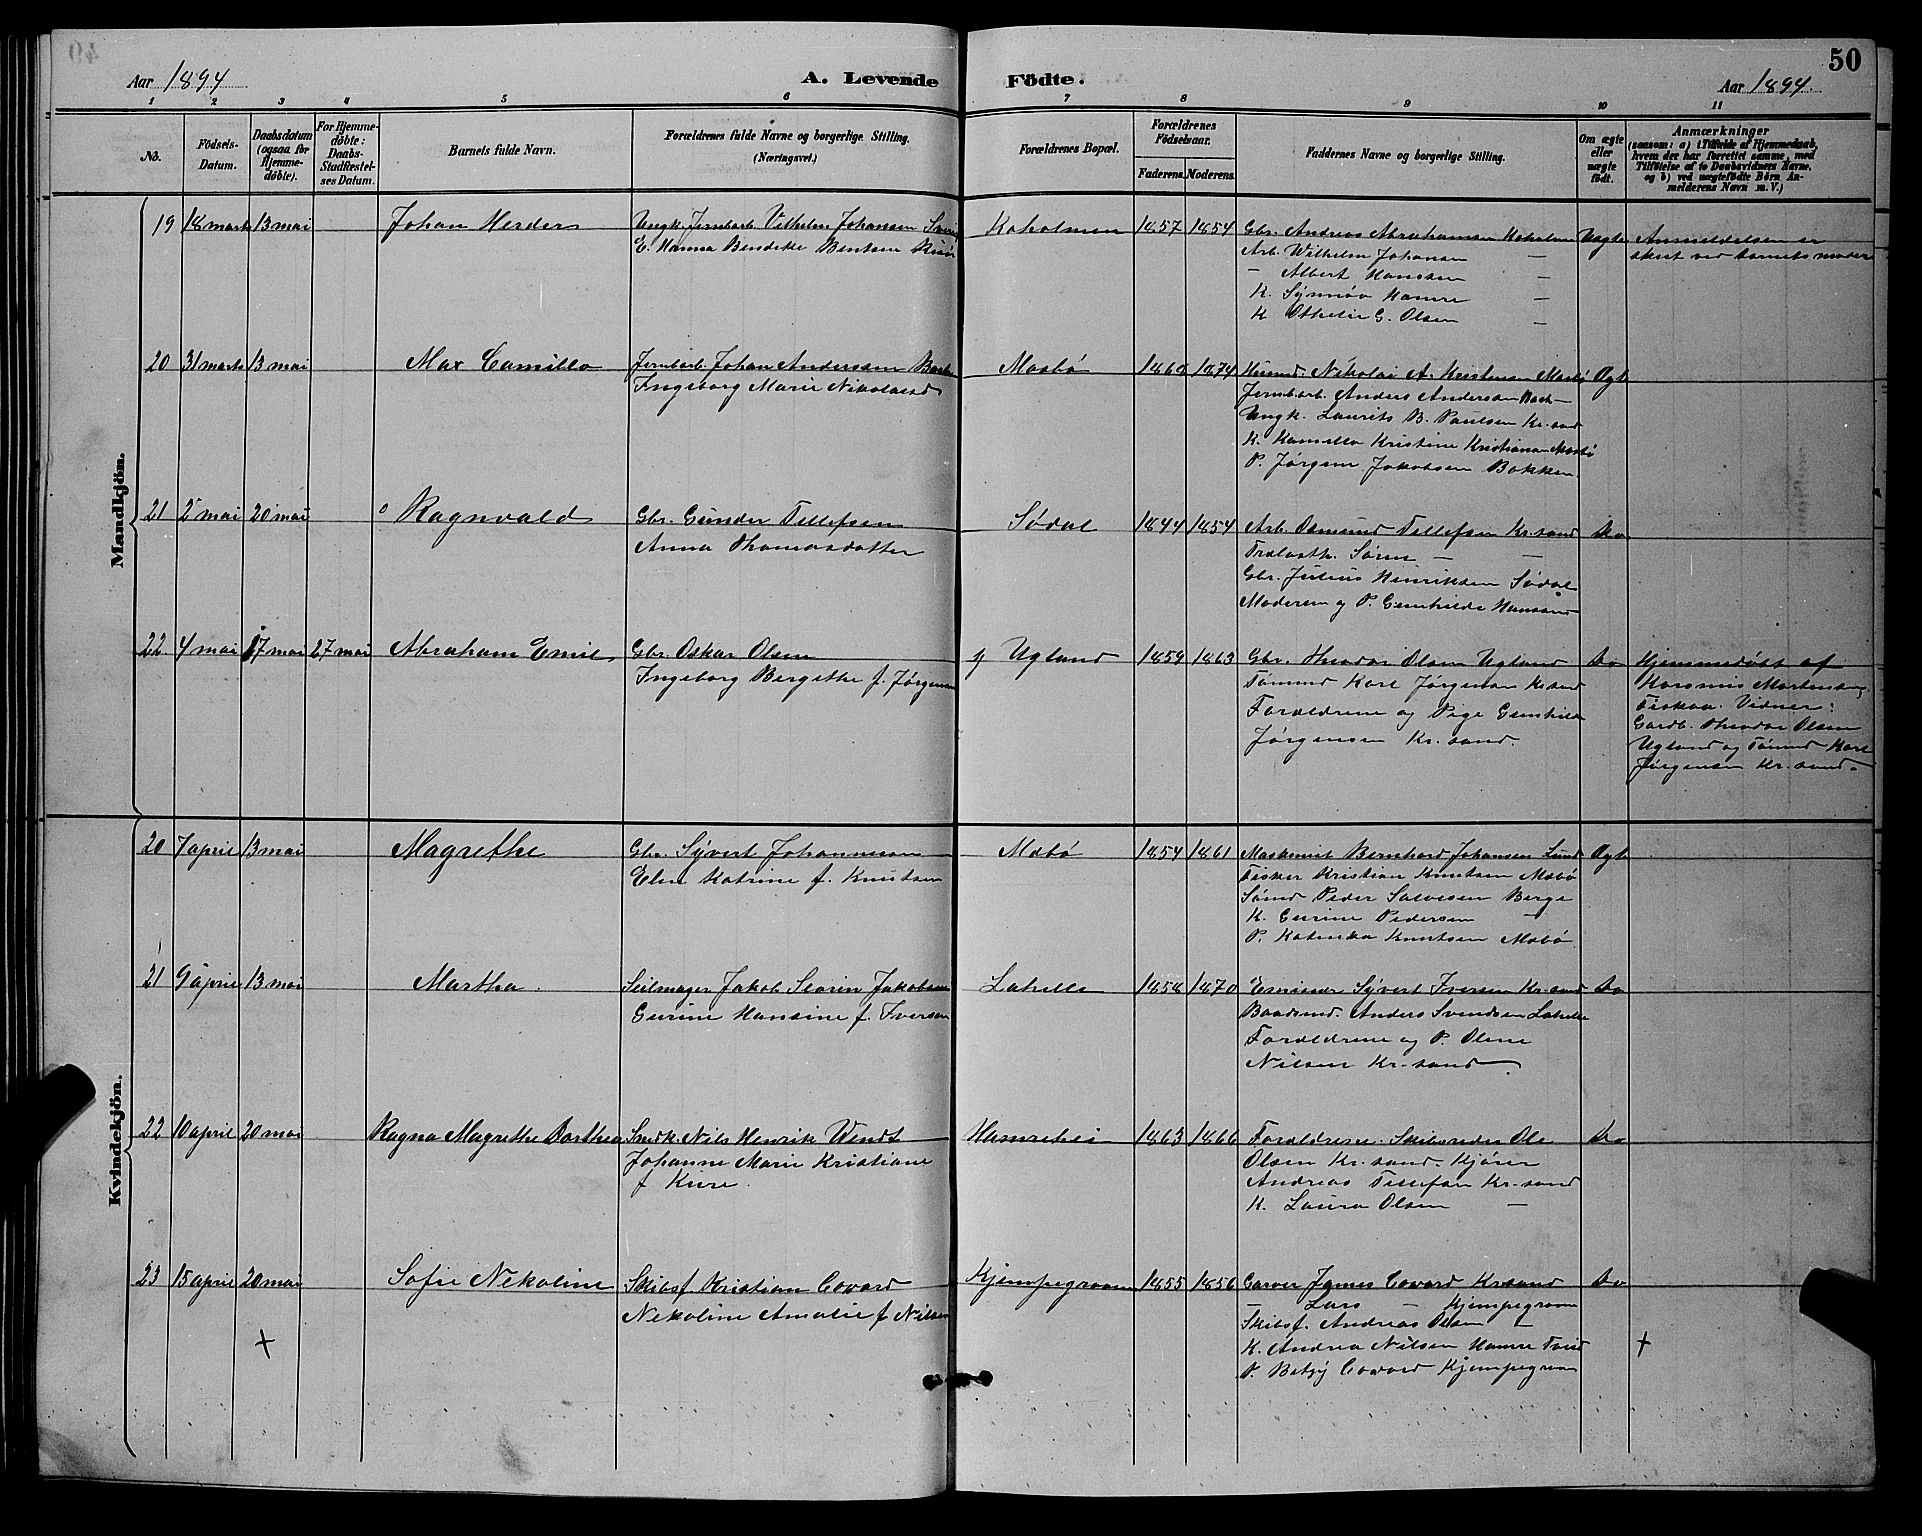 50
Aar 1894
A. Levende Födte.
Aar 1894.
1 2 3 4 5 6 7 8 9 10 11
No.
Födsels-Datum.
Daabsdatum (ogsaa for Hjemme-döbte).
For Hjemme-döbte: Daabs-Stadfæstel-ses Datum.
Barnets fulde Navn.
Forældrenes fulde Navne og borgerlige Stilling.
(Næringsvei.)
Forældrenes Bopæl.
Forældrenes Födselsaar.
Faderens. Moderens.
Faddernes Navne og borgerlige Stilling.
Om ægte eller uægte født.
Anmærkninger
(saasom: a) i Tilfælde af Hjemmedaab, hvem der har forrettet samme, med Tilföielse af to Daabsvidners Navne, og b) ved uægtefödte Börn An-melderens Navn m. V.)
Mandkjön.
19 18 marts 13 mai Johan Herder
Ungk. Jernbarb. Vilhelm Johansen
E. Hanna Bendikte Bentsen
Koholmen 1857 1854
Gbr. Andreas Abrahamsen Koholmen
Arb. Wilhelm Johansen —
— Albert Hanssen —
K. Synnøv Hamre —
K Othelie G. Olsen —
Uægte
Anmeldelsen er
skeet ved barnets moder
20 31 marts 13 mai Max Camillo
Jernbarb. Johan Anderssen
Ingeborg Marie Nikolaisd
Mosbø 1860 1874
Husmd. Nikolai A. Kristensen Mosbø
Jernbarb. Andreas Anderssen Bach —
Ungk. Laurits B. Paulsen Kr.sand
K. Kamilla Kristine Kristiansen Mosbø
P. Jørgine Jakobsen Bakken
Ægt
21 2 mai 20 mai Ragnvald
Gbr. Gunder Tellefsen
Anna Thomasdatter
Sødal 1844 1854
Arb. Osmund Tellefsen Kr.sand
Søren — —
Gbr. Julius Henriksen Sødal
Moderen og P. Gunhilde Hanssen
Do
22 4 mai 17 mai 27 mai Abraham Emil
Gbr. Oskar Olsen
Ingeborg Bergithe f. Jørgensen
Ugland 1859 1863
Gbr. Theodor Olsen Ugland
Tømmd Karl Jørgensen Kr.sand
Forældrene og Pige Gunhilde
Jørgensen Kr.sand.
Do
Hjemmedøbt af
Mortensen
Fiskaa. Vidner:
Gardb. Theodor Olsen
Ugland og Tømmd Karl
Jørgensen Kr.sand.
Kvindekjön.
20 7 april 13 mai Magrethe
Gbr. Syvert Johannessen
Elen Katrine f. Knutsen
Mebø 1854 1861
Maskinist Bernhard Johansen Lund
Fisker Kristian Knutsen Mebø
Sømd Peder Salvesen Berge
K. Gurine Pedersen —
P. Katinka Knutsen Mebø
Ægt
21 9 april 13 mai Martha.
Seilmager Jakob Severin Jakobsen
Gurine Hansine f. Iversen
Lahelle 1858 1870
Syvert Iversen Kr.sand
Baadsmd. Anders Svendsen Lahelle
Forældrene og P. Oline
Nilsen Kr.sand.
Do
22 10 april 20 mai Ragna Magrethe Dorthea
Snedk. Nils Henrik Wendt
Johanne Marie Kristiane
f Kure.
Hamrehei 1863 1866
Forældrene. Skibsreder Ole
Olsen Kr.sand. Kjører
Andreas Tellefsen Kr.sand
K. Laura Olsen —
Do
23 15 april 20 mai Sofie Nekoline
Skibsf. Kristian Coward
Nekoline Amalie f Nilsen
Kjempegroven 1855 1856
Garver James Coward Kr.sand
— Lars — Kjempegroven
Skibsf. Andreas Olsen —
K. Andrea Nilsen Hamre Tveid
P. Betzy Coward Kjempegroven
Do